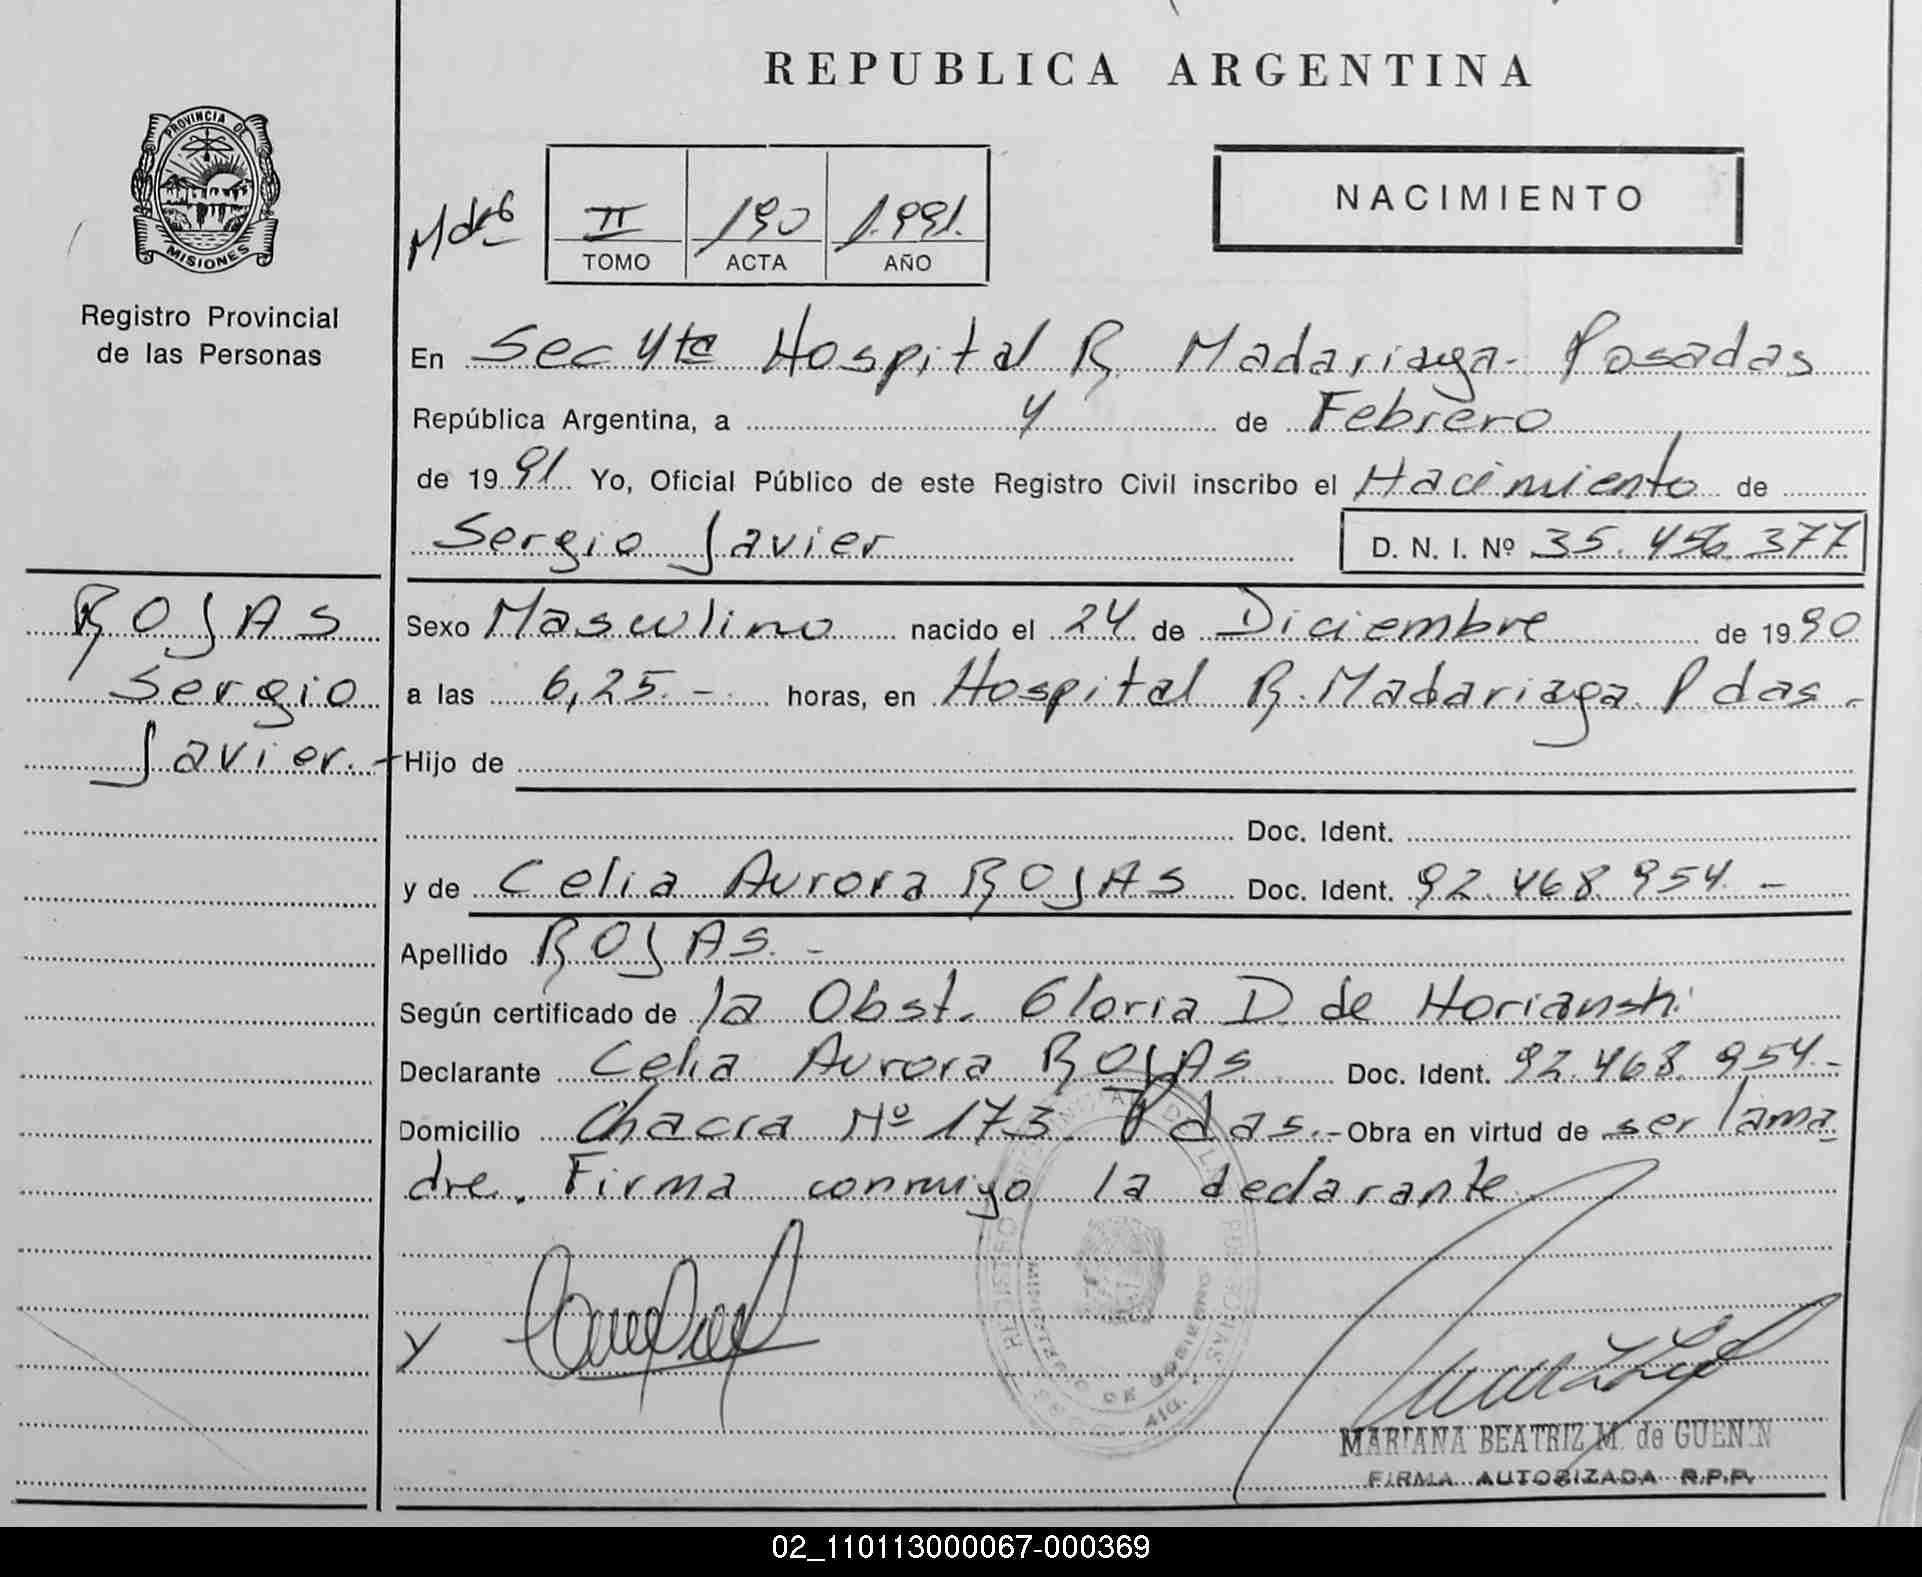 REPUBLICA ARGENTINA
PROVINCIA DE
MISIONES
NACIMIENTO
II 190 1.991.
TOMO ACTA AÑO
Registro Provincial
de las Personas
En Sec 4ta Hospital R. Madariaga- Posadas
República Argentina, a 4 de Febrero
de 1991 Yo, Oficial Público de este Registro Civil inscribo el Nacimiento de
Sergio Javier D. N. I. Nº 35.456.377
ROJAS
Sergio
Javier.-
Sexo Masculino nacido el 24 de Diciembre de 1990
a las 6,25.- horas, en Hospital R. Madariaga. Pdas.
Hijo de
Doc. Ident.
y de Celia Aurora ROJAS Doc. Ident. 92.468.954.-
Apellido ROJAS.-
Según certificado de la Obst. Gloria D. de
Declarante Celia Aurora ROJAS Doc. Ident. 92.468.954.-
Domicilio Chacra Nº 173. Pdas.- Obra en virtud de ser la ma
dre. Firma conmigo la declarante
MARIANA BEATRIZ M. de GUENIN
FIRMA AUTORIZADA R.P.P.
02_110113000067-000369